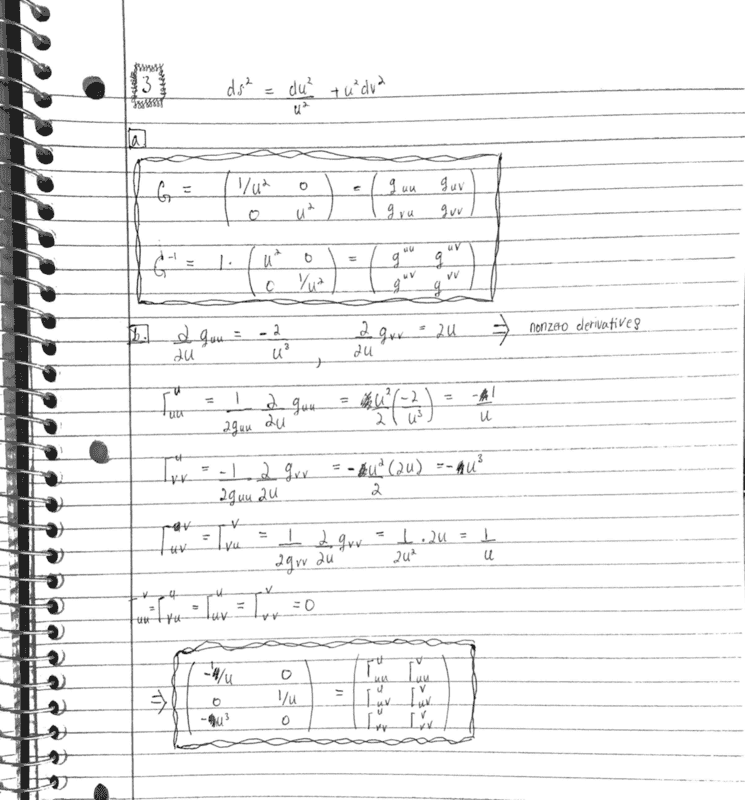 3
ds² = du²/u² + u²dv²
a
G = ( 1/u² 0 ; 0 u² ) = ( g_uu g_uv ; g_vu g_vv )
G⁻¹ = 1 · ( u² 0 ; 0 1/u² ) = ( g^uu g^uv ; g^uv g^vv )
b. ∂/∂u g_uu = -2/u³ , ∂/∂u g_vv = 2u ⇒ nonzero derivatives
Γ^u_uu = 1/2g_uu ∂/∂u g_uu = u²/2 (-2/u³) = -1/u
Γ^u_vv = -1/2g_uu ∂/∂u g_vv = -u²(2u)/2 = -u³
Γ^v_uv = Γ^v_vu = 1/2g_vv ∂/∂u g_vv = 1/2u² · 2u = 1/u
Γ^v_uu = Γ^u_vu = Γ^u_uv = Γ^v_vv = 0
⇒ ( -1/u 0 ; 0 1/u ; -u³ 0 ) = ( Γ^u_uu Γ^v_uu ; Γ^u_uv Γ^v_uv ; Γ^u_vv Γ^v_vv )